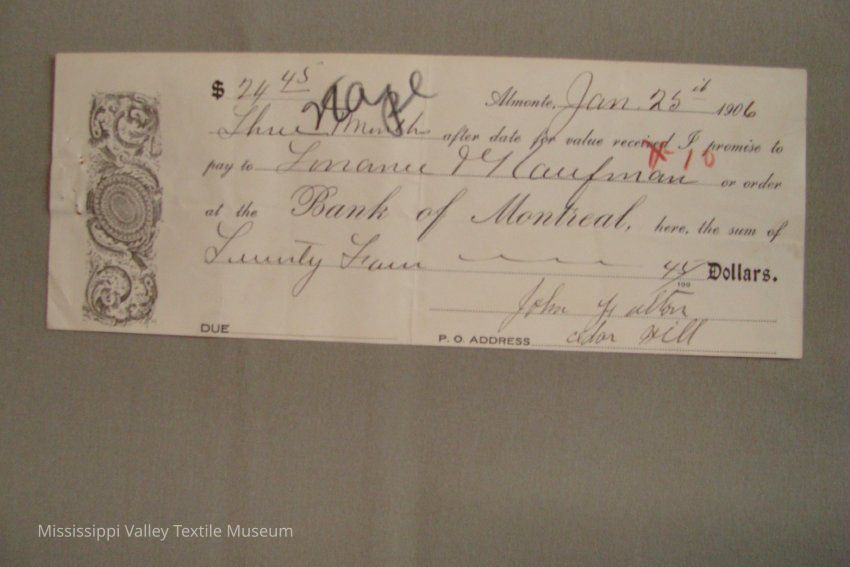 $ 24 45
Almonte, Jan. 25th 1906
Three Months after date for value received I promise to
pay to Kaufman or order
at the Bank of Montreal, here, the sum of
Twenty Four 45/100 Dollars.
John
DUE
P. O. ADDRESS Cedar Hill
Mississippi Valley Textile Museum